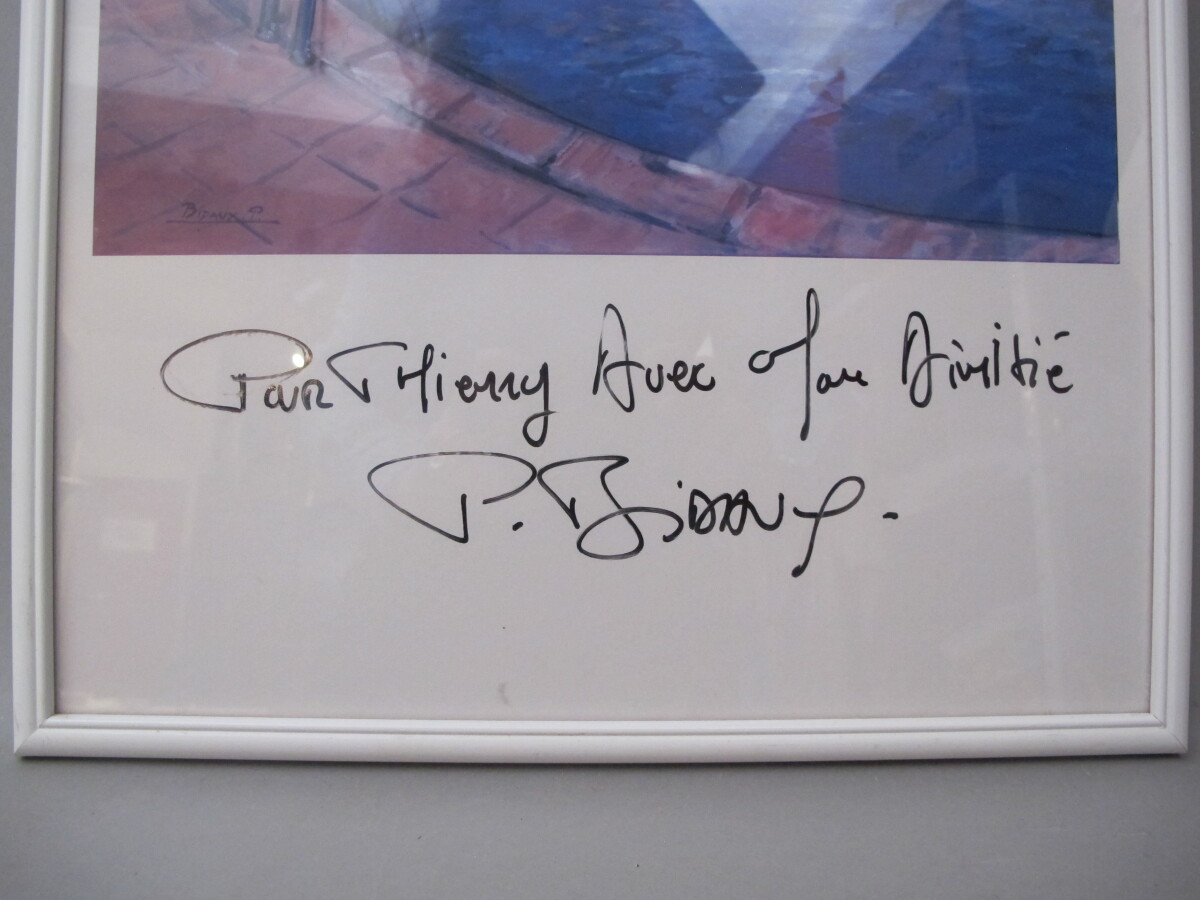 BIDAUX 91
Pour Thierry Avec Mon Amitié
P. BIDAUX.